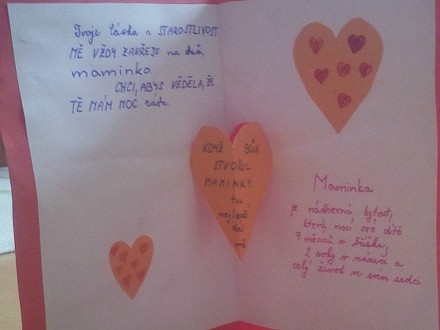 Tvoje láska a STAROSTLIVOST
MĚ VŽDY ZAHŘEJE na duši,
maminko
CHCI, ABYS VĚDĚLA, ŽE
TĚ MÁM MOC ráda.
KDYŽ BŮH
STVOŘIL
MAMINKY
tu
nejlepší
dal
mě
Maminka
je nádherná bytost,
která nosí své dítě
9 měsíců v bříšku,
2 roky v náručí a
celý život ve svém srdci